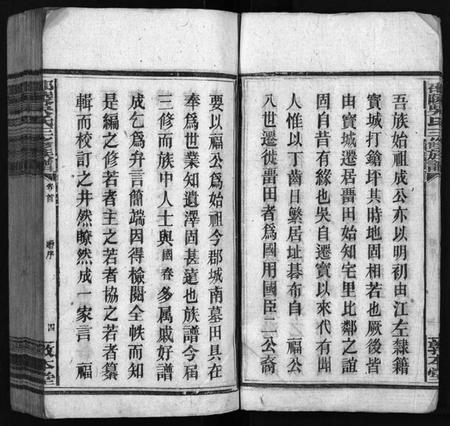 吾族始祖成公亦以明初由江左隸籍
寶城打鎗坪其時地固相若也厥後皆
由寶城遷居罾田始知宅里比鄰之誼
固自昔有緣也吳自遷寶以來代有聞
人惟以丁齒日繁居址碁布自 福公
八世遷徙罾田者爲國用國臣二公裔
要以福公爲始祖今郡城南墓田具在
奉爲世業知遺澤固甚遠也族譜今屆
三修而族中人士與國春多屬戚好譜
成乞爲弁言簡端因得檢閱全帙而知
是編之修若者主之若者協之若者纂
輯而校訂之井然瞭然成一家言 福
氏三修族譜
卷首
序
四
敦本堂